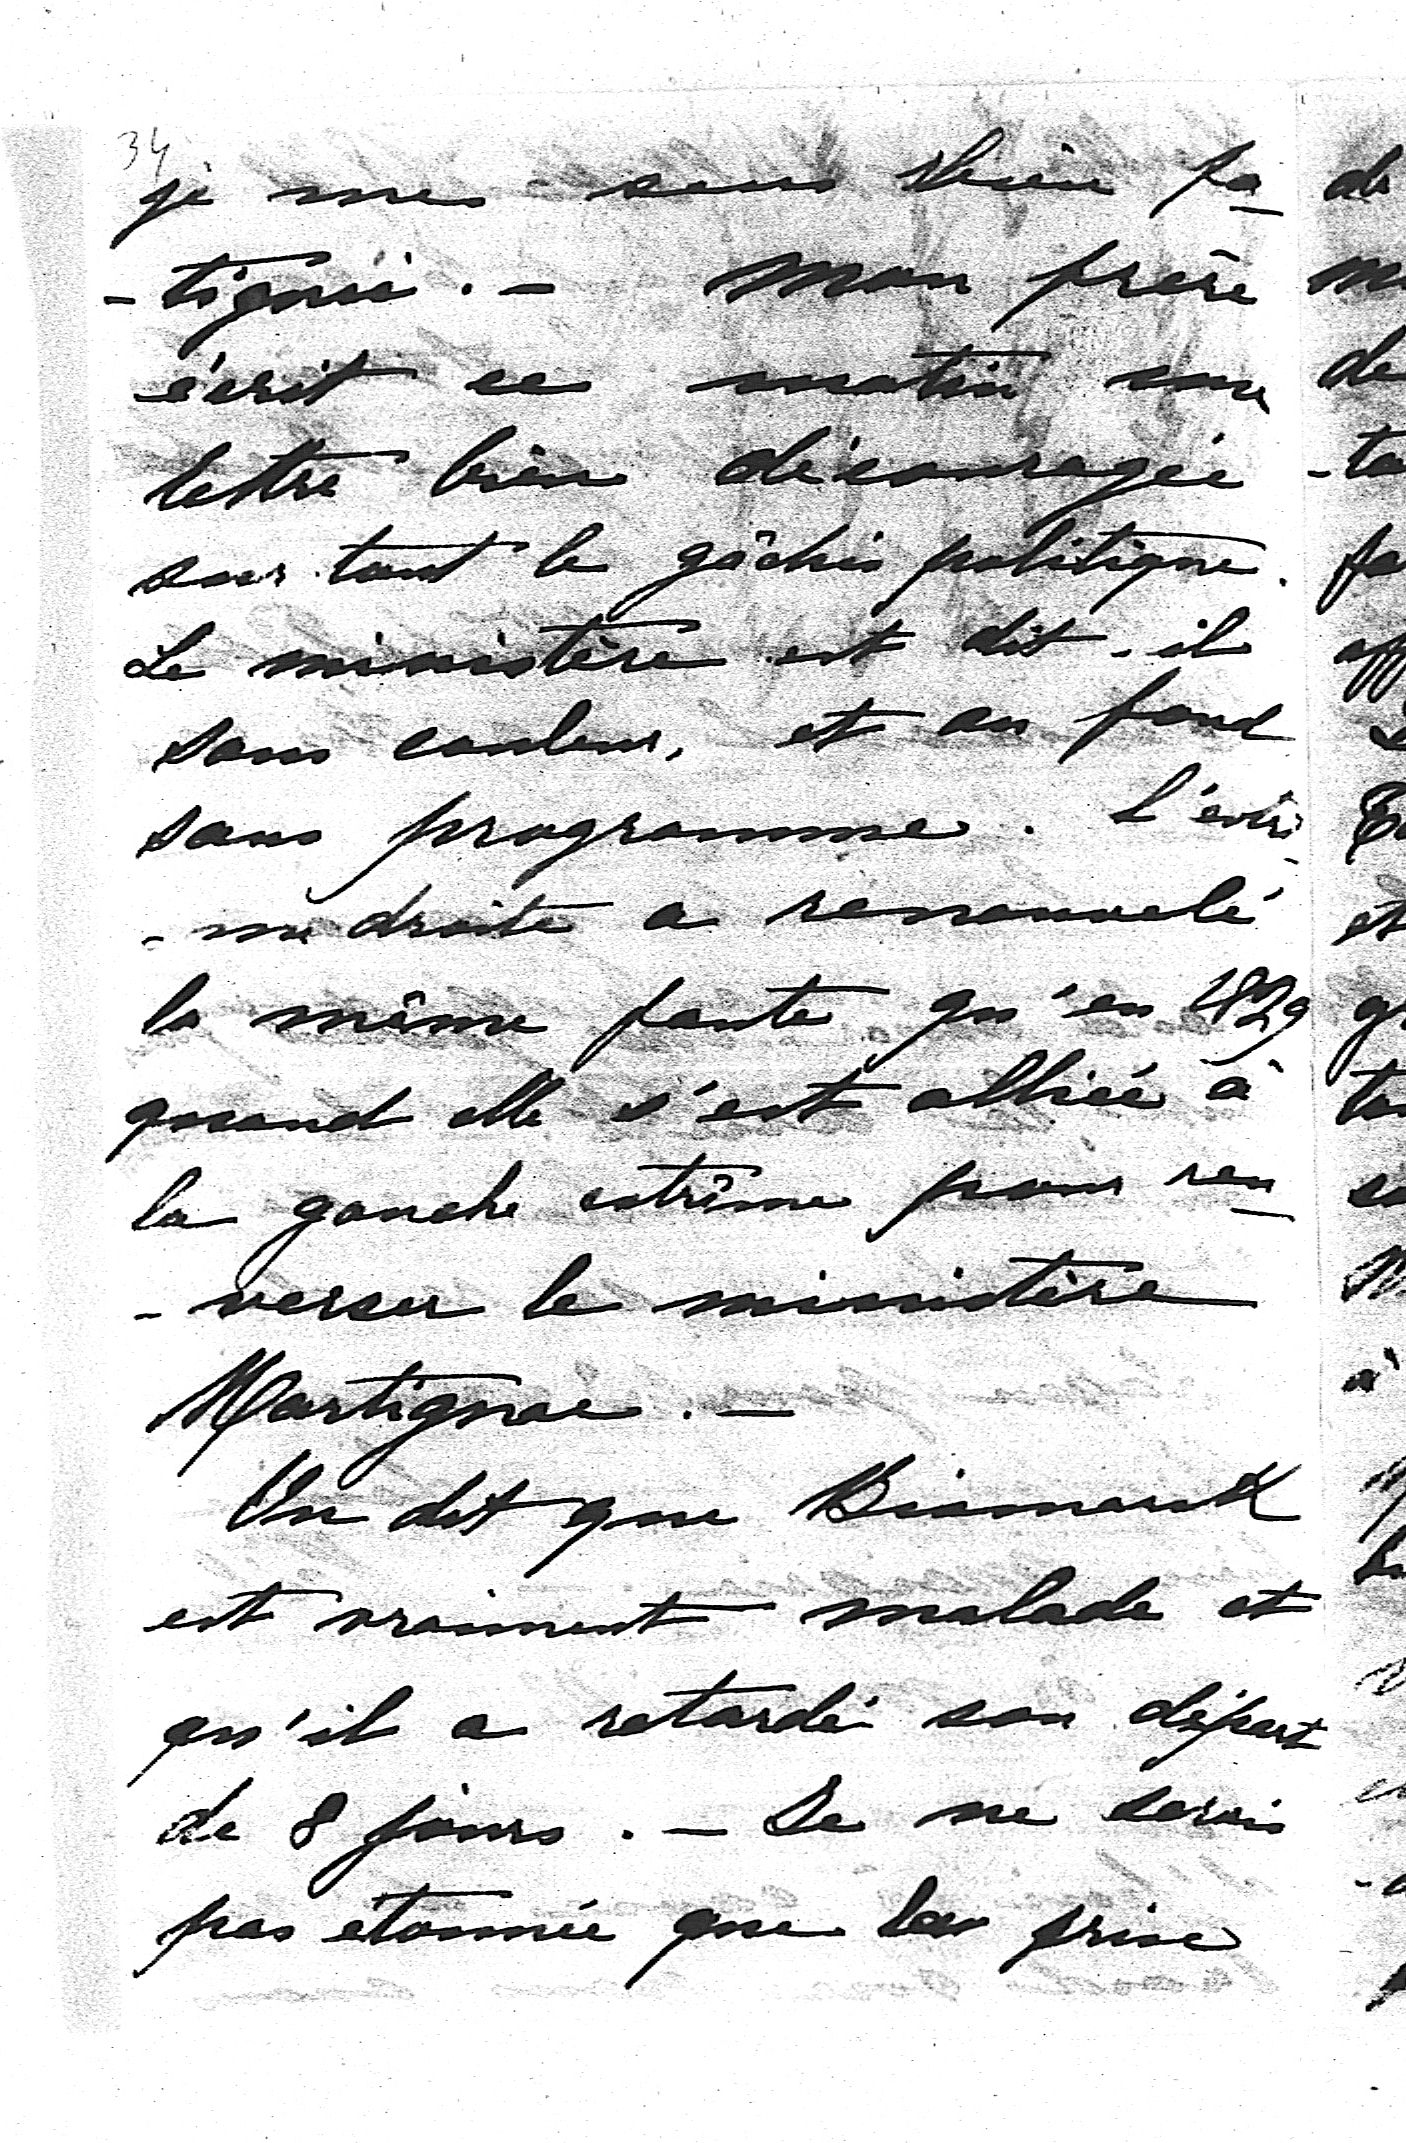 34
je me sens bien fa
-tiguée. - Mon frère
écrit ce matin une
lettre bien découragée
sur tout le gâchis politique.
Le ministère est dit-il
sans couleur, et au fond
sans programme. L'extrê
-me droite a renouvelé
la même faute qu'en 1829
quand elle s'est alliée à
la gauche extrême pour ren
-verser le ministère
Martignac. -
On dit que Bismarck
est vraiment malade et
qu'il a retardé son départ
de 8 jours. - Je ne serais
pas étonnée que la prise